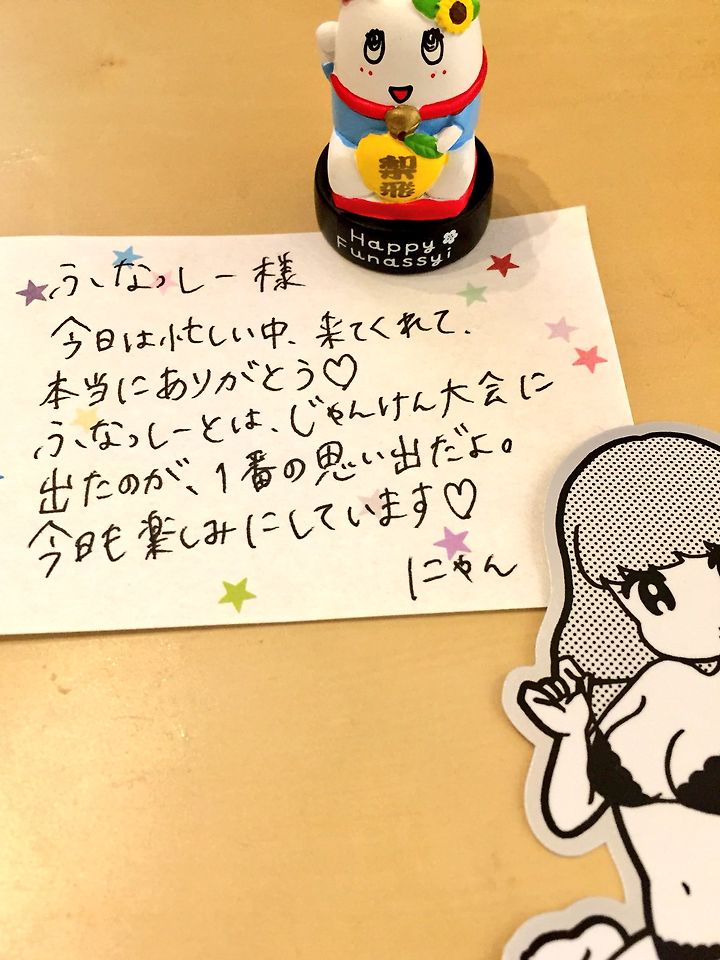 梨
飛
Happy
Funassyi
ふなっしー様
今日は忙しい中、来てくれて、
本当にありがとう♡
ふなっしーとは、じゃんけん大会に
出たのが、1番の思い出だよ。
今日も楽しみにしています♡
にゃん